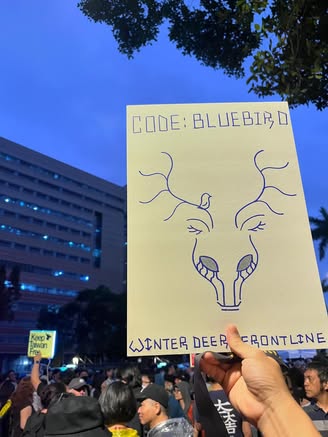 CODE: BLUEBIRD
WINTER DEER FRONTLINE
Keep
Taiwan
Free